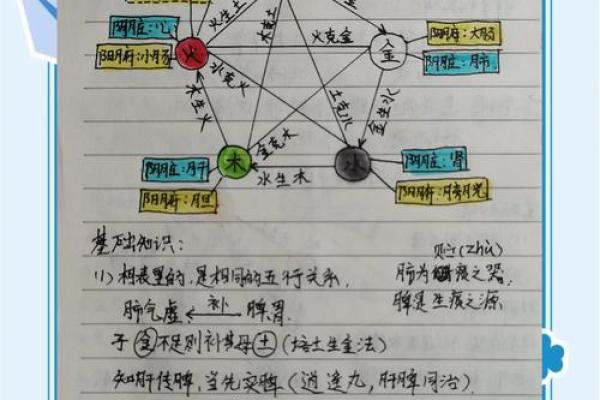 火生土
木克土
阴脏:心
阳腑:小肠
火
火克金
金
阳腑:大肠
阴脏:肺
水克火
木生火
土克水
金生水
金克木
木
水
水生木
阴脏:肝
阳腑:胆
阴脏:肾
阳腑:膀胱
基础知识:
(1)相表里的,是相同的五行关系.
贮(zhù)
肺为痰之器.
肺气虚 ← 补 脾胃.
脾是生痰之源
子(金)不足则补其母(土)(培土生金法)
知肝传脾,当先实脾(逍遥丸,肝脾同治).